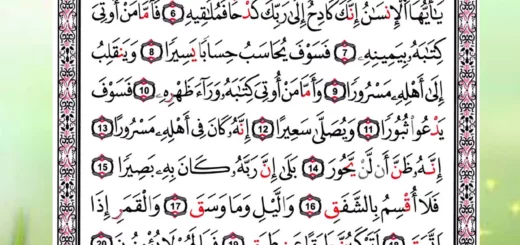 يَـٰٓأَيُّهَا ٱلْإِنسَـٰنُ إِنَّكَ كَادِحٌ إِلَىٰ رَبِّكَ كَدْحًا فَمُلَـٰقِيهِ 6 فَأَمَّا مَنْ أُوتِىَ
كِتَـٰبَهُۥ بِيَمِينِهِۦ 7 فَسَوْفَ يُحَاسَبُ حِسَابًا يَسِيرًا 8 وَيَنقَلِبُ
إِلَىٰٓ أَهْلِهِۦ مَسْرُورًا 9 وَأَمَّا مَنْ أُوتِىَ كِتَـٰبَهُۥ وَرَآءَ ظَهْرِهِۦ 10 فَسَوْفَ
يَدْعُوا۟ ثُبُورًا 11 وَيَصْلَىٰ سَعِيرًا 12 إِنَّهُۥ كَانَ فِىٓ أَهْلِهِۦ مَسْرُورًا 13
إِنَّهُۥ ظَنَّ أَن لَّن يَحُورَ 14 بَلَىٰٓ إِنَّ رَبَّهُۥ كَانَ بِهِۦ بَصِيرًا 15
فَلَآ أُقْسِمُ بِٱلشَّفَقِ 16 وَٱلَّيْلِ وَمَا وَسَقَ 17 وَٱلْقَمَرِ إِذَا